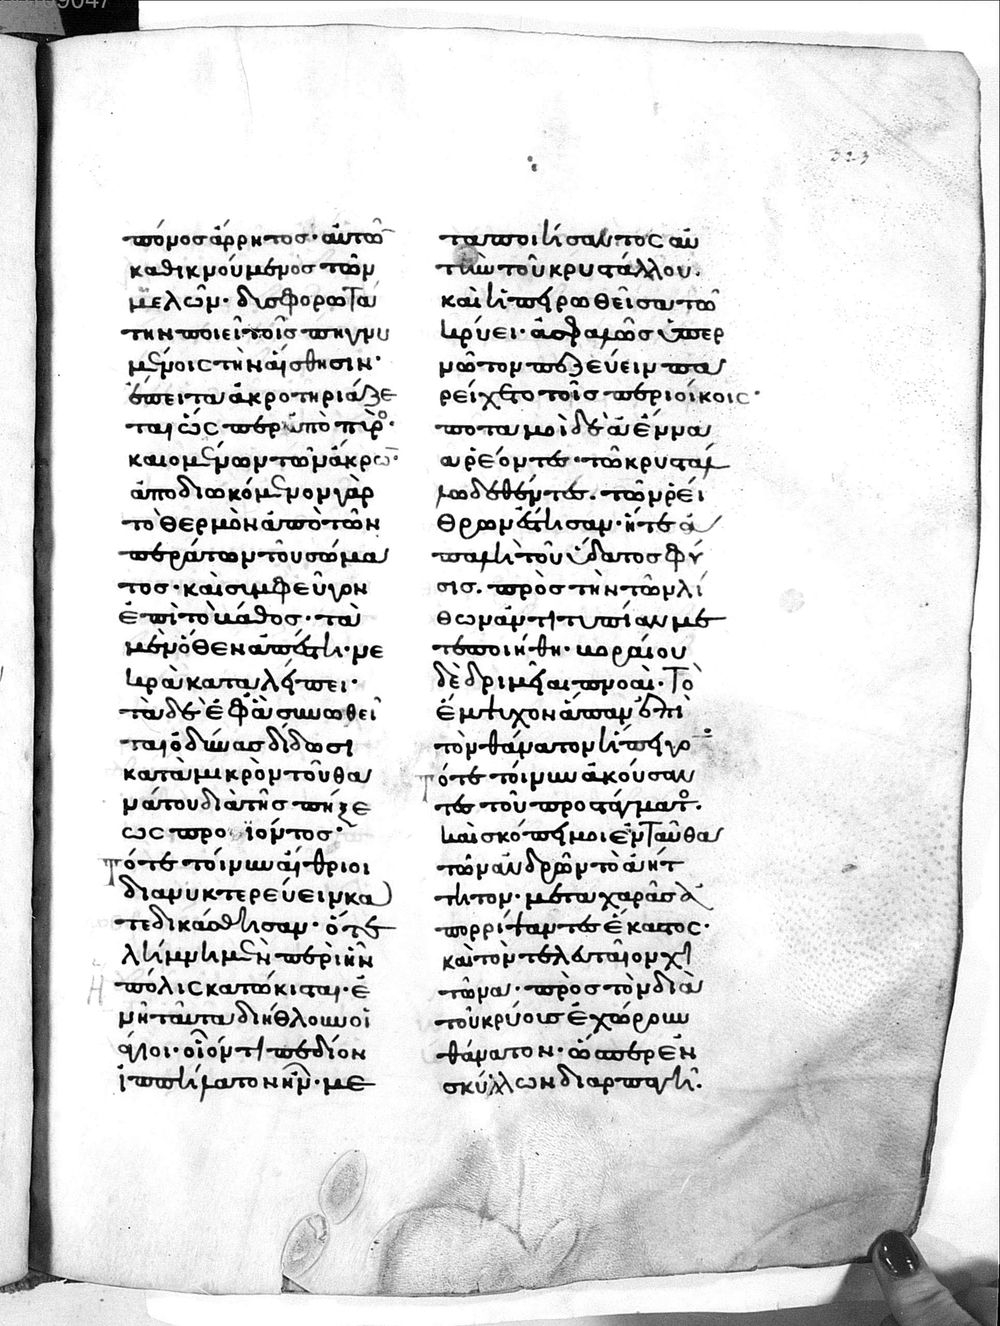 323
πόνος ἄρρητος· αὐτῶ
καθικνούμενος τῶν
μελῶν· δυσφορωτά
την ποιεῖ τοῖς πηγνυ
μένοις τὴν αἴσθησιν·
ἔπειτα ἀκροτηριάζε
ται ὥσπερ ὑπὸ πυρὸς·
καιομένων τῶν ἄκρων·
ἀποδιωκόμενον γὰρ
τὸ θερμὸν ἀπὸ τῶν
περάτων τοῦ σώμα
τος· καὶ συμφεῦγον
ἐπὶ τὸ βάθος· τὰ
μὲν ὅθεν ἀπέστη· νε
κρὰ καταλείπει·
τὰ δὲ ἐφ' ἃ συνωθεῖ
ται ὀδύναις δίδωσι
κατὰ μικρὸν τοῦ θα
νάτου διὰ τῆς πήξε
ως προϊόντος·
τότε τοίνυν αἴθριοι
διανυκτερεύειν κα
τεδικάσθησαν· ὅτε
λίμνη μὲν περὶ ἣν ἡ
πόλις κατώκισται· ἐ
ν ἧ ταῦτα διήθλουν οἱ
ἅγιοι· οἷόν τι πεδίον
ἱππήλατον ἦν· με
ταποιήσαντος αὐ
τὴν τοῦ κρυστάλλου·
καὶ ἠπειρωθεῖσα τῶ
κρύει· ἀσφαλῶς ὑπὲρ
νῶτον πεζεύειν πα
ρείχετο τοῖς περιοίκοις·
ποταμοὶ δὲ ἀέννα
α ῥέοντες· τῶ κρυστάλ
λω δεθέντες· τῶν ῥεί
θρων ἔστησαν· ἥ τε ἁ
παλὴ τοῦ ὕδατος φύ
σις· πρὸς τὴν τῶν λί
θων ἀντιτυπίαν με
τεποιήθη· βοραίου
δὲ δριμεῖαι πνοαὶ· τὸ
ἔμψυχον ἅπαν ἐπὶ
τὸν θάνατον ἤπειγον·
τότε τοίνυν ἀκούσαν
τες τοῦ προστάγματος·
καὶ σκόπει μοι ἐνταῦθα
τῶν ἀνδρῶν τὸ ἀήτ
τητον· μετὰ χαρᾶς ἀ
πορρίψαντες ἕκαστος·
καὶ τὸν τελευταῖον χι
τῶνα· πρὸς τὸν διὰ
τοῦ κρύους ἐχώρουν
θάνατον· ὥσπερ ἐν
σκύλων διαρπαγῆ·